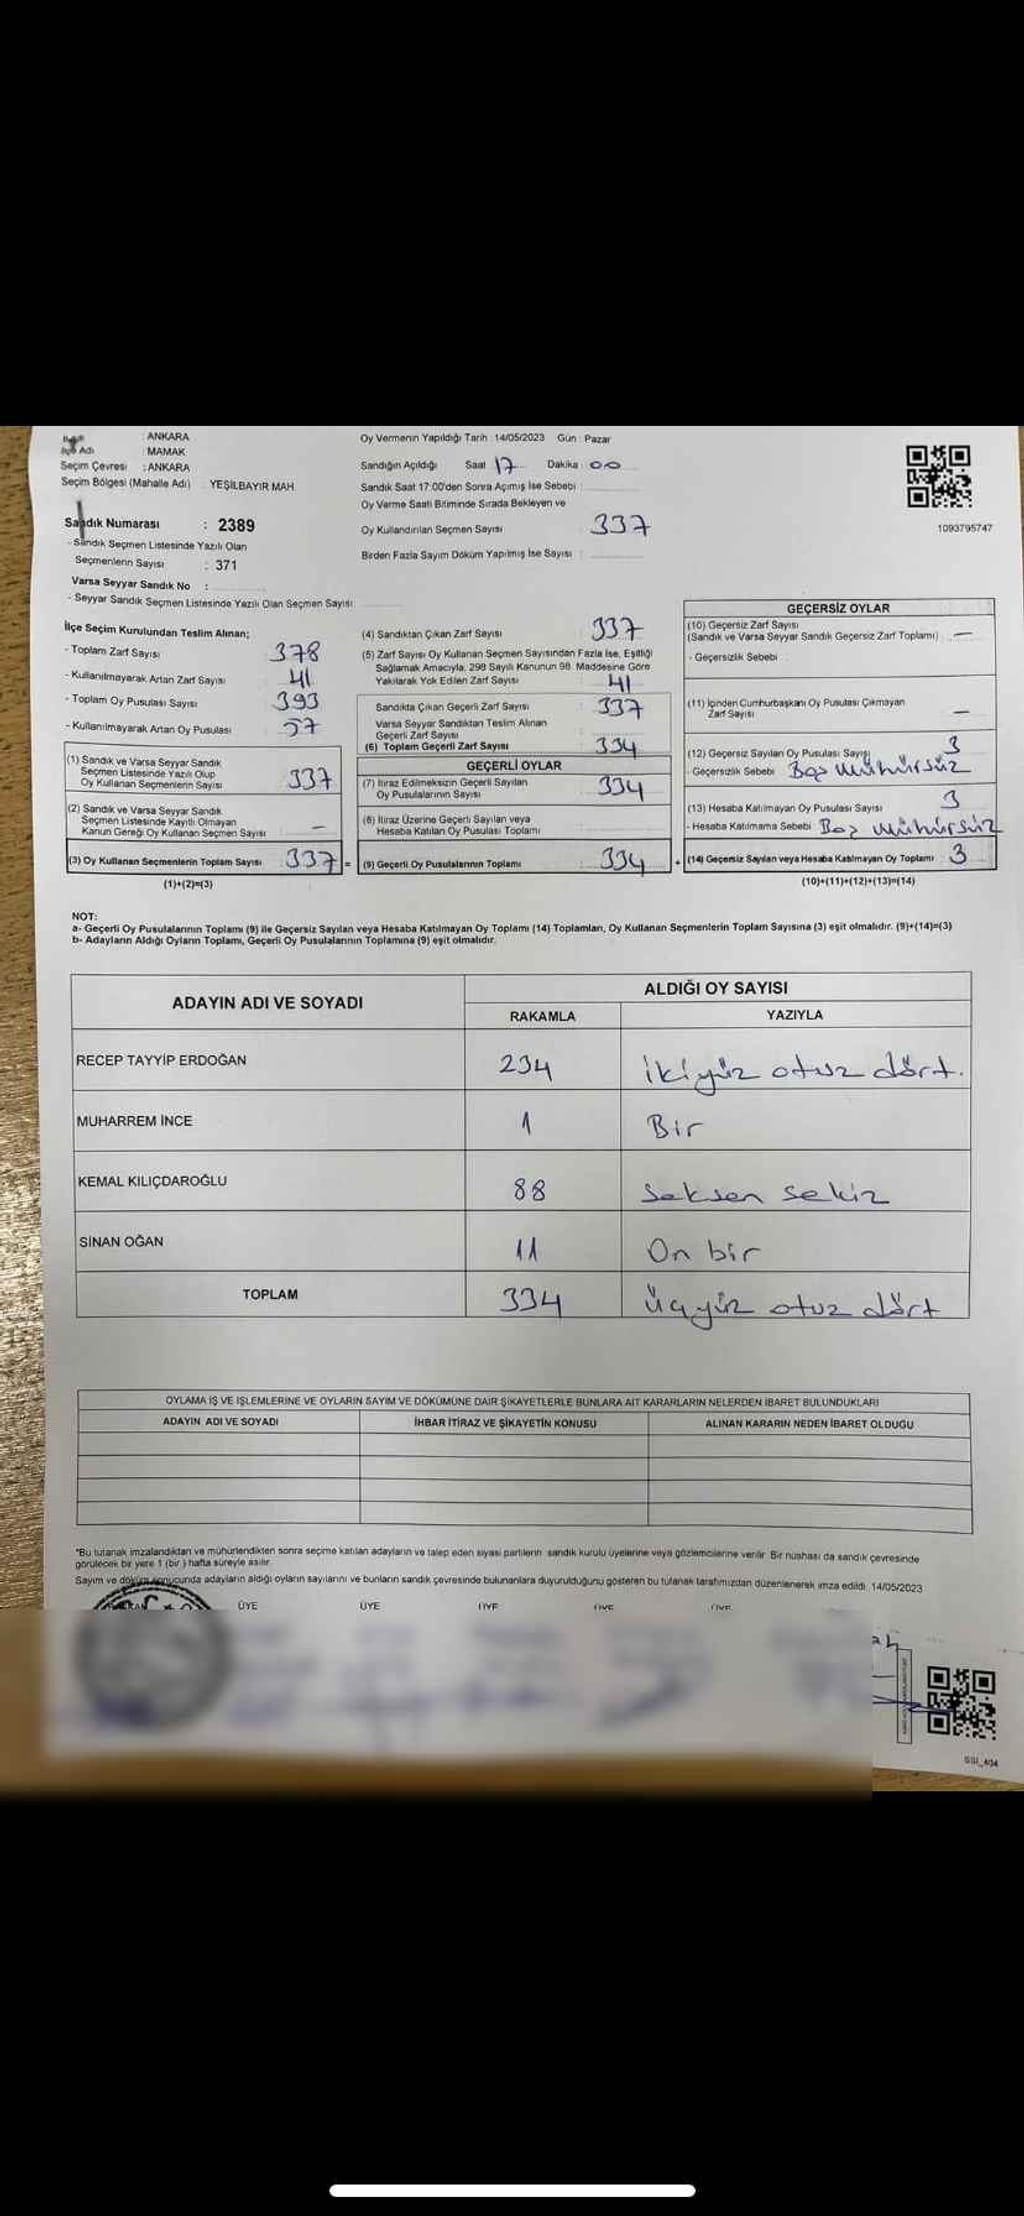 : ANKARA
İlçe Adı : MAMAK
Seçim Çevresi : ANKARA
Seçim Bölgesi (Mahalle Adı) YEŞİLBAYIR MAH
Oy Vermenin Yapıldığı Tarih : 14/05/2023 Gün : Pazar
Sandığın Açıldığı Saat 17 Dakika : 00
Sandık Saat 17:00'den Sonra Açımış İse Sebebi :
Oy Verme Saati Bitiminde Sırada Bekleyen ve
Oy Kullandırılan Seçmen Sayısı : 337
Birden Fazla Sayım Döküm Yapılmış İse Sayısı :
1093795747
Sandık Numarası : 2389
- Sandık Seçmen Listesinde Yazılı Olan
Seçmenlerin Sayısı : 371
Varsa Seyyar Sandık No :
- Seyyar Sandık Seçmen Listesinde Yazılı Olan Seçmen Sayısı:
İlçe Seçim Kurulundan Teslim Alınan;
- Toplam Zarf Sayısı 378
- Kullanılmayarak Artan Zarf Sayısı 41
- Toplam Oy Pusulası Sayısı 393
- Kullanılmayarak Artan Oy Pusulası 57
(1) Sandık ve Varsa Seyyar Sandık
Seçmen Listesinde Yazılı Olup
Oy Kullanan Seçmenlerin Sayısı 337
(2) Sandık ve Varsa Seyyar Sandık
Seçmen Listesinde Kayıtlı Olmayan
Kanun Gereği Oy Kullanan Seçmen Sayısı : —
(3) Oy Kullanan Seçmenlerin Toplam Sayısı 337 =
(1)+(2)=(3)
(4) Sandıktan Çıkan Zarf Sayısı 337
(5) Zarf Sayısı Oy Kullanan Seçmen Sayısından Fazla İse, Eşitliği
Sağlamak Amacıyla, 298 Sayılı Kanunun 98. Maddesine Göre
Yakılarak Yok Edilen Zarf Sayısı 41
Sandıkta Çıkan Geçerli Zarf Sayısı 337
Varsa Seyyar Sandıktan Teslim Alınan
Geçerli Zarf Sayısı
(6) Toplam Geçerli Zarf Sayısı 334
GEÇERLİ OYLAR
(7) İtiraz Edilmeksizin Geçerli Sayılan
Oy Pusulalarının Sayısı 334
(8) İtiraz Üzerine Geçerli Sayılan veya
Hesaba Katılan Oy Pusulası Toplamı :
(9) Geçerli Oy Pusulalarının Toplamı : 334 +
GEÇERSİZ OYLAR
(10) Geçersiz Zarf Sayısı
(Sandık ve Varsa Seyyar Sandık Geçersiz Zarf Toplamı) —
- Geçersizlik Sebebi :
(11) İçinden Cumhurbaşkanı Oy Pusulası Çıkmayan
Zarf Sayısı —
(12) Geçersiz Sayılan Oy Pusulası Sayısı 3
- Geçersizlik Sebebi Boş mühürsüz
(13) Hesaba Katılmayan Oy Pusulası Sayısı 3
- Hesaba Katılmama Sebebi Boş mühürsüz
(14) Geçersiz Sayılan veya Hesaba Katılmayan Oy Toplamı : 3
(10)+(11)+(12)+(13)=(14)
NOT:
a- Geçerli Oy Pusulalarının Toplamı (9) ile Geçersiz Sayılan veya Hesaba Katılmayan Oy Toplamı (14) Toplamları, Oy Kullanan Seçmenlerin Toplam Sayısına (3) eşit olmalıdır. (9)+(14)=(3)
b- Adayların Aldığı Oyların Toplamı, Geçerli Oy Pusulalarının Toplamına (9) eşit olmalıdır.
ADAYIN ADI VE SOYADI
ALDIĞI OY SAYISI
RAKAMLA YAZIYLA
RECEP TAYYİP ERDOĞAN 234 İkiyüz otuz dört.
MUHARREM İNCE 1 Bir
KEMAL KILIÇDAROĞLU 88 Seksen sekiz
SİNAN OĞAN 11 On bir
TOPLAM 334 Üçyüz otuz dört
OYLAMA İŞ VE İŞLEMLERİNE VE OYLARIN SAYIM VE DÖKÜMÜNE DAİR ŞİKAYETLERLE BUNLARA AİT KARARLARIN NELERDEN İBARET BULUNDUKLARI
ADAYIN ADI VE SOYADI İHBAR İTİRAZ VE ŞİKAYETİN KONUSU ALINAN KARARIN NEDEN İBARET OLDUĞU
*Bu tutanak imzalandıktan ve mühürlendikten sonra seçime katılan adayların ve talep eden siyasi partilerin sandık kurulu üyelerine veya gözlemcilerine verilir. Bir nüshası da sandık çevresinde
görülecek bir yere 1 (bir ) hafta süreyle asılır.
Sayım ve döküm sonucunda adayların aldığı oyların sayılarını ve bunların sandık çevresinde bulunanlara duyurulduğunu gösteren bu tutanak tarafımızdan düzenlenerek imza edildi. 14/05/2023
ÜYE ÜYE ÜYE ÜYE ÜYE